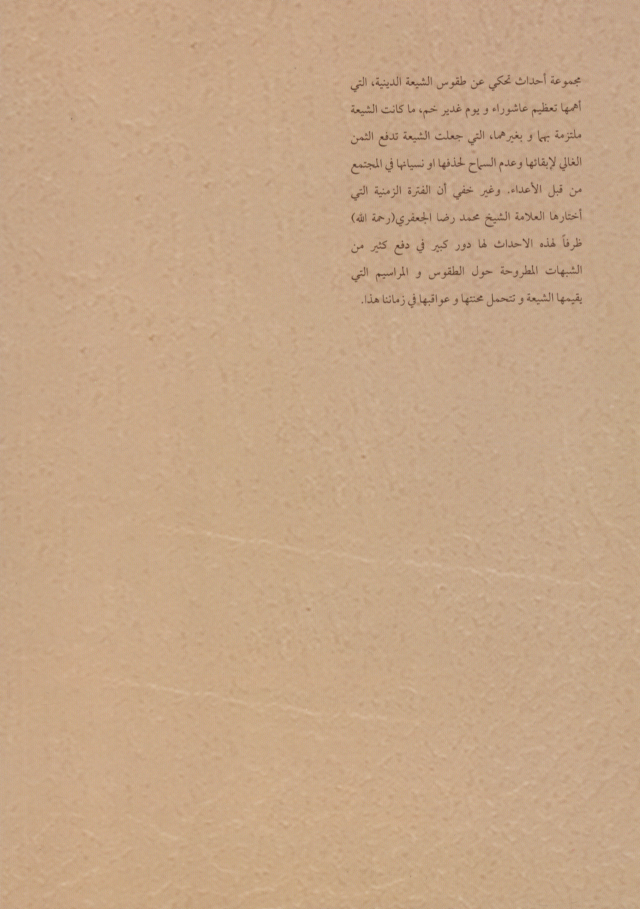 مجموعة أحداث تحكي عن طقوس الشيعة الدينية، التي
أهمها تعظيم عاشوراء و يوم غدير خم، ما كانت الشيعة
ملتزمة بهما و بغيرهما، التي جعلت الشيعة تدفع الثمن
الغالي لإبقائها وعدم السماح لحذفها او نسيانها في المجتمع
من قبل الأعداء. وغير خفي أن الفترة الزمنية التي
أختارها العلامة الشيخ محمد رضا الجعفري(رحمة الله)
ظرفاً لهذه الاحداث لها دور كبير في دفع كثير من
الشبهات المطروحة حول الطقوس و المراسيم التي
يقيمها الشيعة و تتحمل محنتها و عواقبها في زماننا هذا.